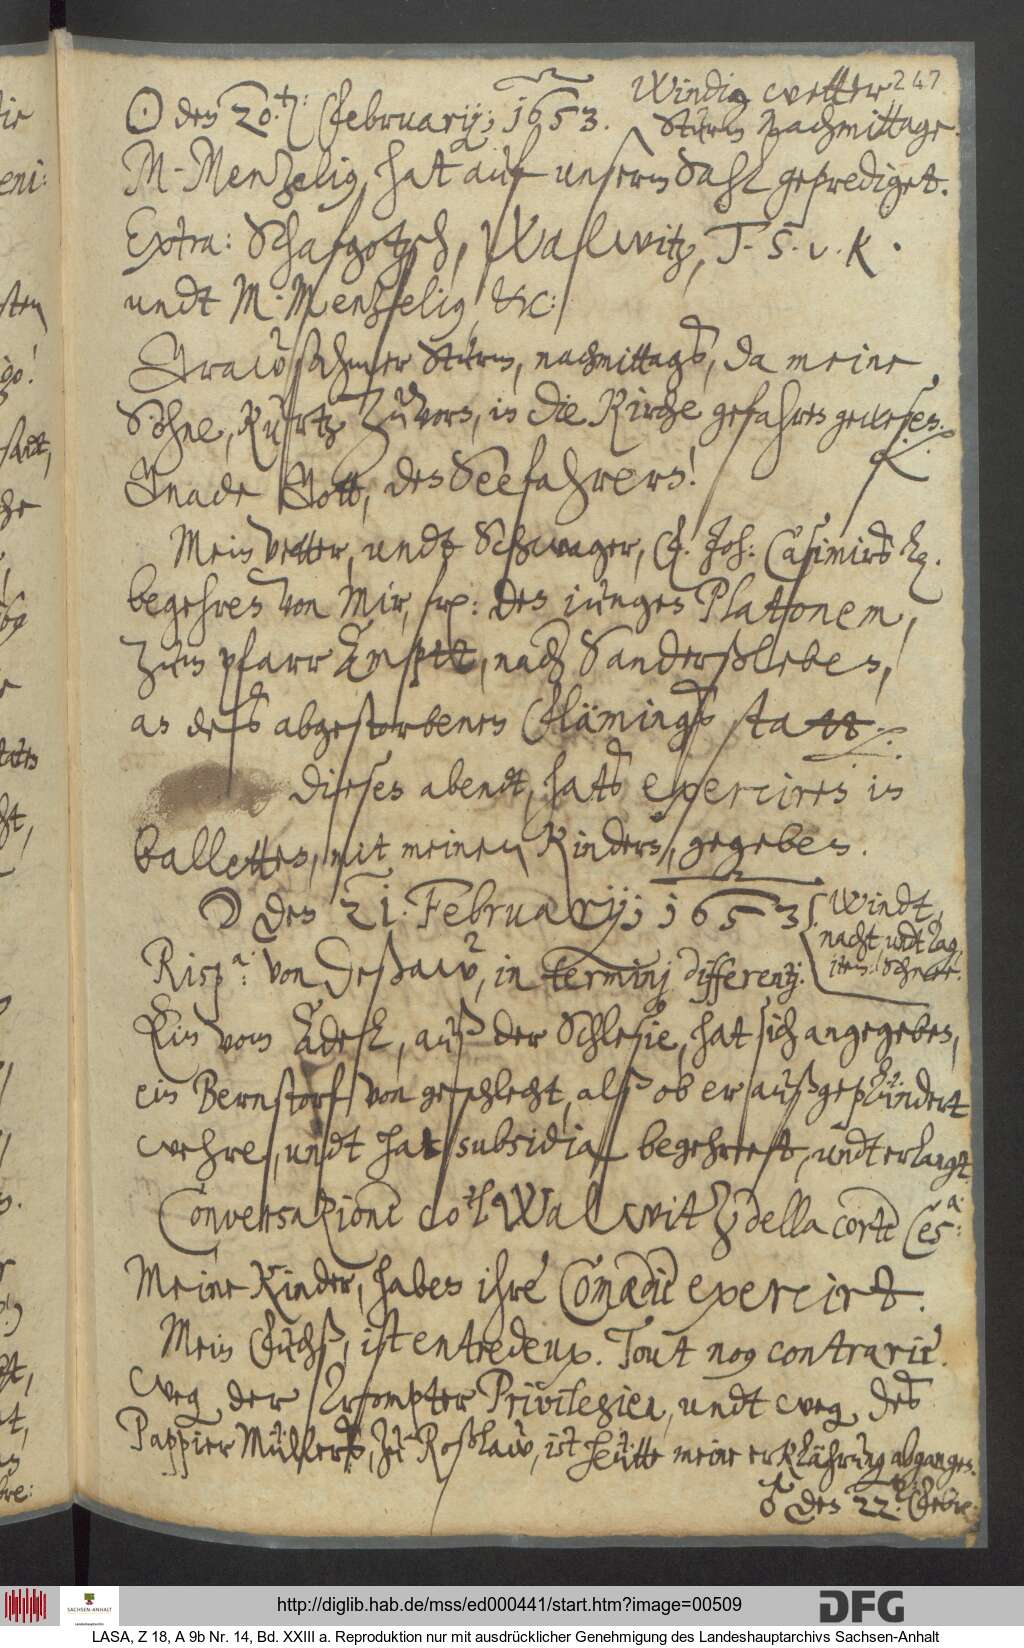 247
Windig wetter
☉ den 20.t: Februarij; 1653. Sturm Nachmittage.
M. Menzelig, hat auf unserm Sahl geprediget.
Extra: Schafgotsch, Walwitz, T. S. v. K.
undt M. Menzelig &c:
Grawsahmer Sturm, nachmittags, da meine
Söhne, Kurtz zuvorn, in die Kirche gefahren gewesen.
Gnade Gott, den Seefahrern!
Mein Vetter, undt Schwager, F. Joh: Casimirs
begehren von Mir, den jungen Platonem,
zum pfarr Ampt, nach Sanderßleben,
an deß abgestorbenen Flämings statt.
Dieses abendt, hats exerciren in
Balletten, mit meinen Kindern, gegeben.
☽ den 21. Februarij; 1653. Windt,
nacht undt Tag,
item: Schnee.
Risp.a: von Deßaw, in terminj differentj.
Ein vom Adel, auß der Schlesie, hat sich angegeben,
ein Bernstorf von geschlecht, alß ob er außgeplündert
wehre, undt hat subsidia begehret, undt erlangt.
Conversazione co'l Walwitz della corte Ces.a:
Meine Kinder, haben ihre Comœdie exercirt.
Mein Fuchß, ist entredeux. Tout nous contrarie.
weg der Privilegien, undt weg des
Pappier Müllers, zu Roßlaw, ist heütte meine erklährung abgangen.
♂ den 22.t: Febr:
http://diglib.hab.de/mss/ed000441/start.htm?image=00509
DFG
SACHSEN-ANHALT
LASA, Z 18, A 9b Nr. 14, Bd. XXIII a. Reproduktion nur mit ausdrücklicher Genehmigung des Landeshauptarchivs Sachsen-Anhalt